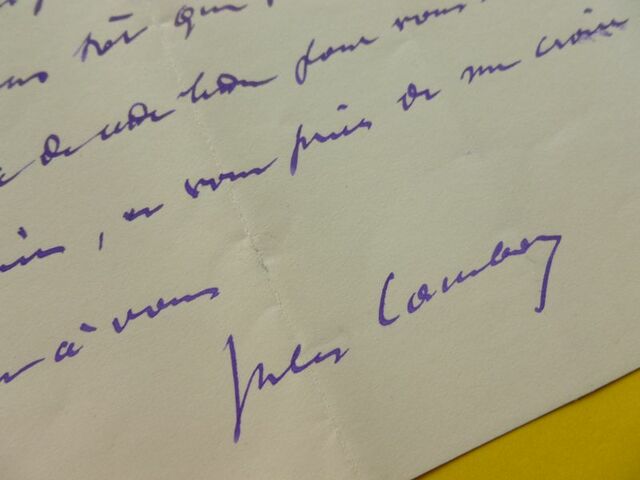 tôt que
de cette lettre pour vous
, en vous priant de me croire
à vous
Jules Cambon